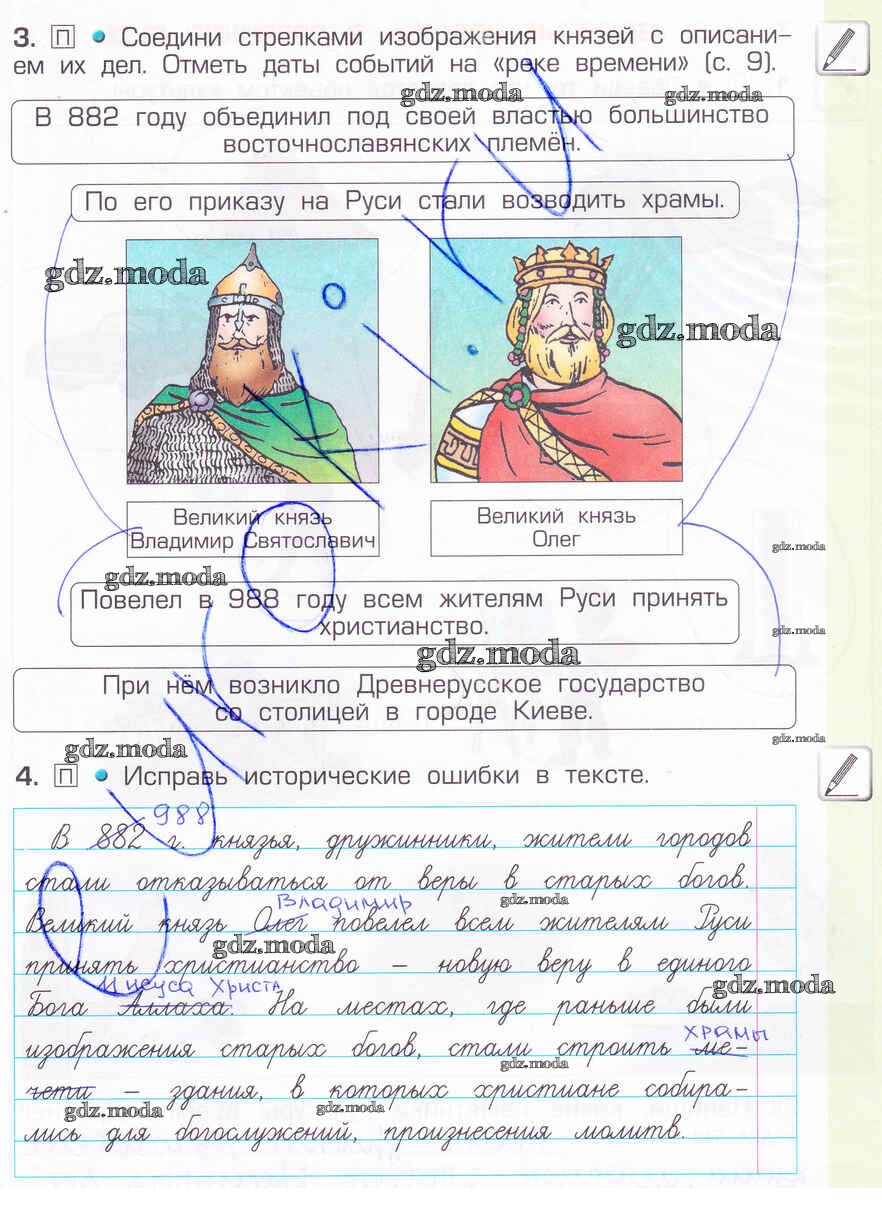 3. П • Соедини стрелками изображения князей с описани–
ем их дел. Отметь даты событий на «реке времени» (с. 9).
gdz.moda gdz.moda
В 882 году объединил под своей властью большинство
восточнославянских племён.
По его приказу на Руси стали возводить храмы.
gdz.moda
gdz.moda
Великий князь
Владимир Святославич
Великий князь
Олег
gdz.moda
gdz.moda
Повелел в 988 году всем жителям Руси принять
христианство.
gdz.moda
gdz.moda
При нём возникло Древнерусское государство
со столицей в городе Киеве.
gdz.moda
gdz.moda
4. П • Исправь исторические ошибки в тексте.
988
В 882 г. князья, дружинники, жители городов
стали отказываться от веры в старых богов.
Владимир
gdz.moda
Великий князь Олег повелел всем жителям Руси
gdz.moda
принять христианство – новую веру в единого
Иисуса Христа
gdz.moda
Бога Аллаха. На местах, где раньше были
храмы
изображения старых богов, стали строить ме–
gdz.moda
чети – здания, в которых христиане собира–
gdz.moda gdz.moda
лись для богослужений, произнесения молитв.